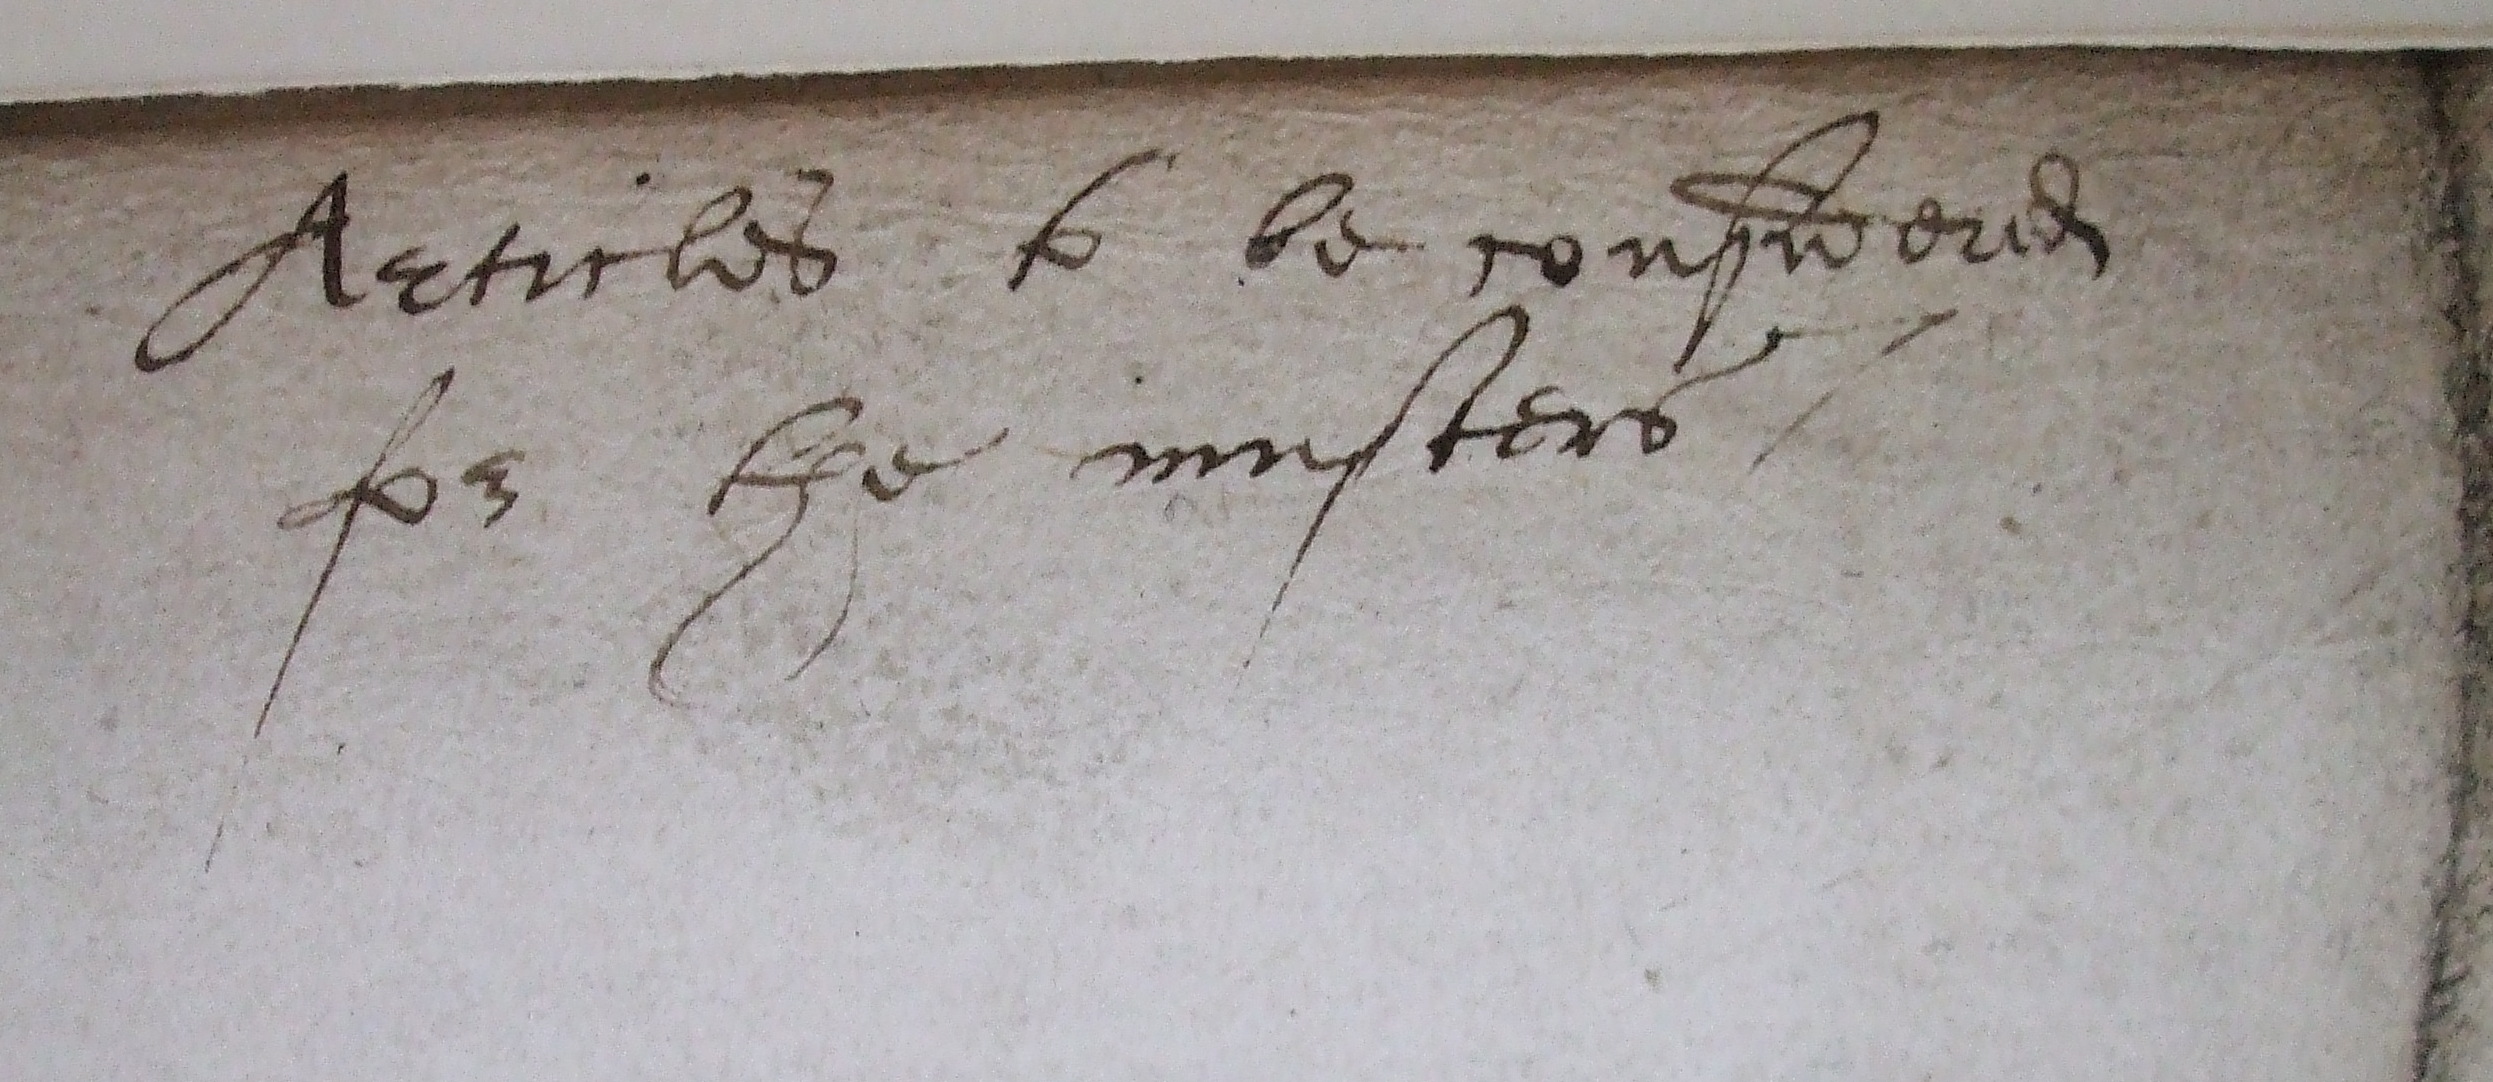 Articles to be considered
for the musters